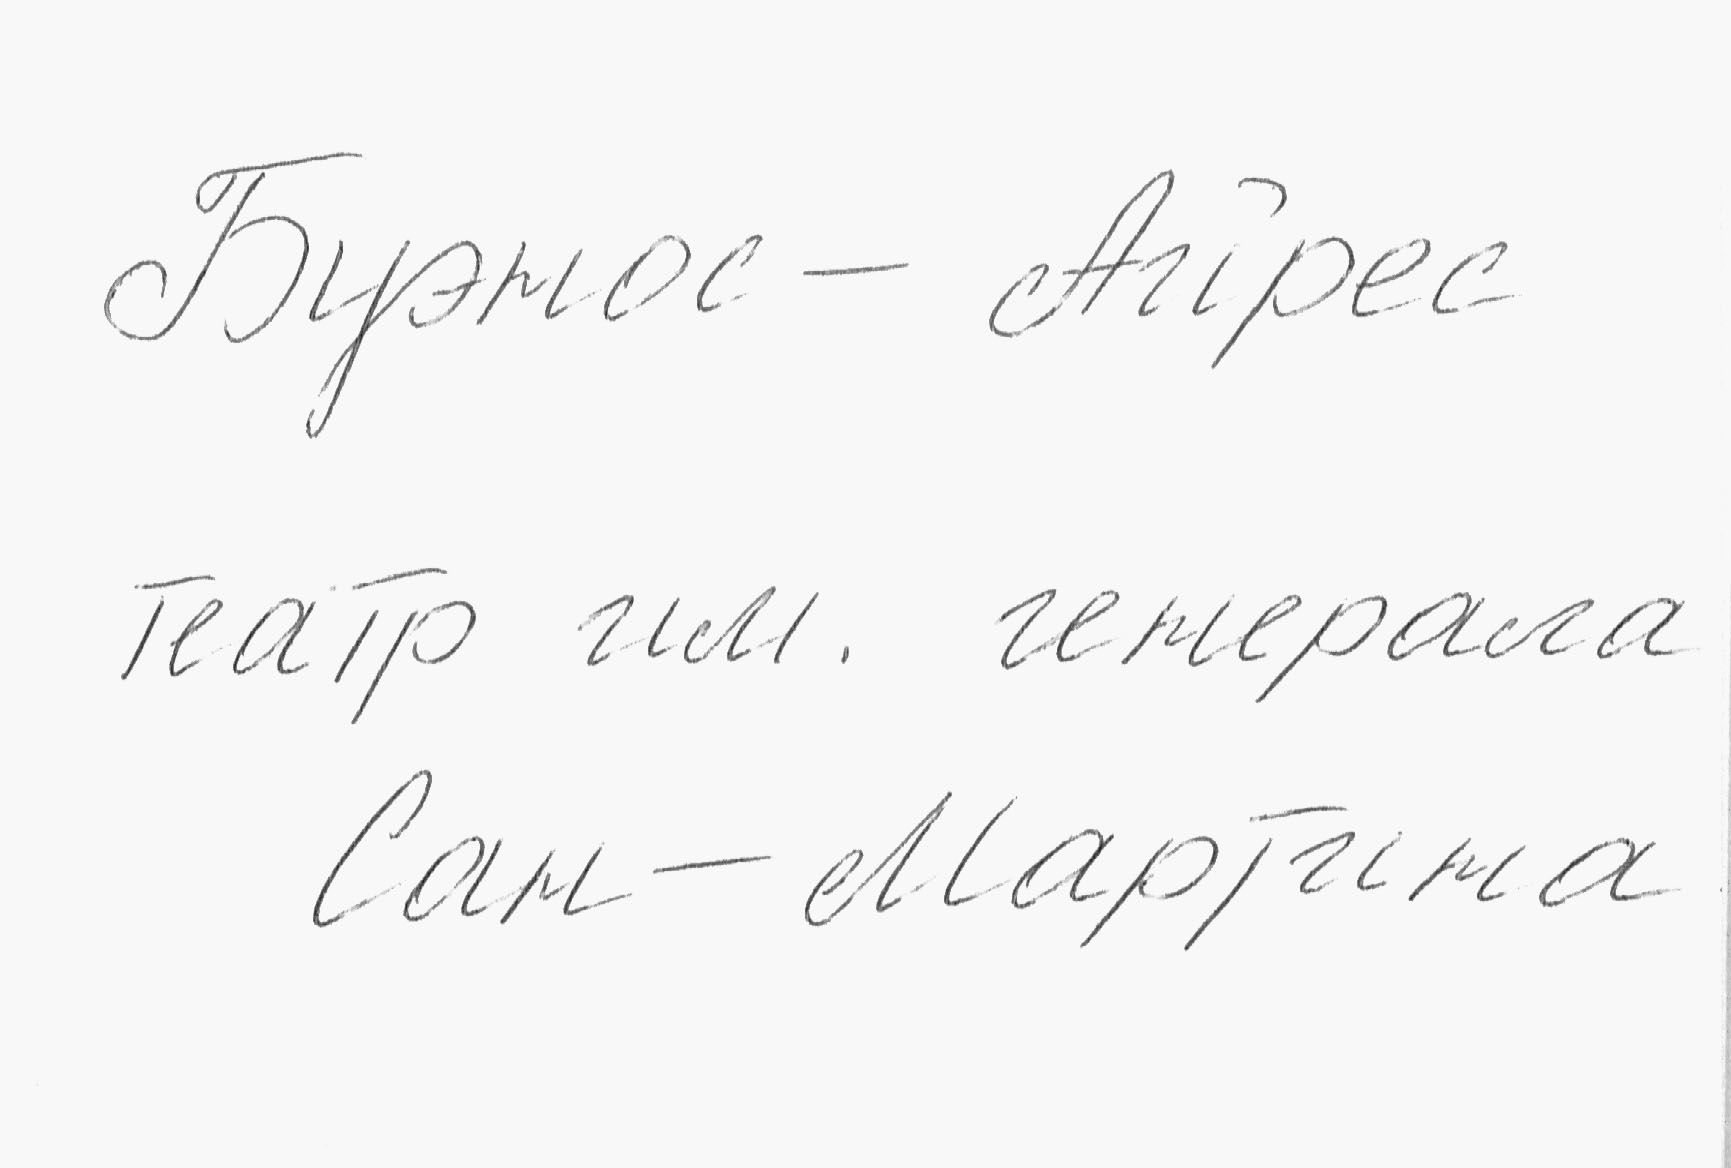 Буэнос - Айрес
театр им. генерала
Сан - Мартина